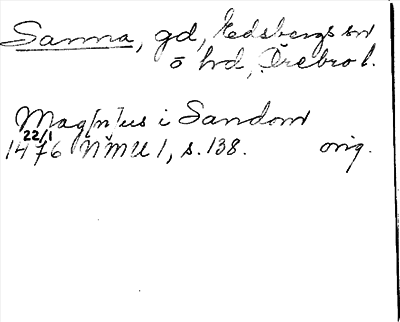 Sanna, gd, Edsbergs sn
o hd, Örebro l.
Mag[n]us i Sandom
22/1
1476 NMU 1, s. 138. orig.